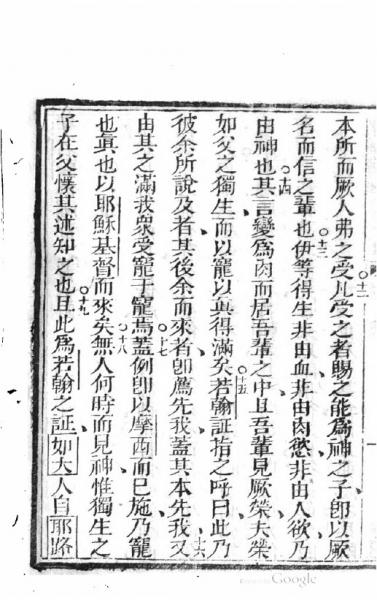 本所而厥人弗之受十二凡受之者賜之能爲神之子卽以厥
名而信之輩也十三伊等得生非由血非由肉慾非由人欲乃
由神也十四其言變爲肉而居吾輩之中且吾輩見厥榮夫榮
如父之獨生而以寵以眞得滿矣十五若翰証指之呼曰此乃
彼余所說及者其後余而來者卽爲先我蓋其本先我十六又
由其之滿我衆受寵于寵焉十七蓋例卽以摩西而已施乃寵
也眞也以耶穌基督而來矣十八無人何時而見神惟獨生之
子在父懷其述知之也十九且此爲若翰之証如大人自耶路
Google